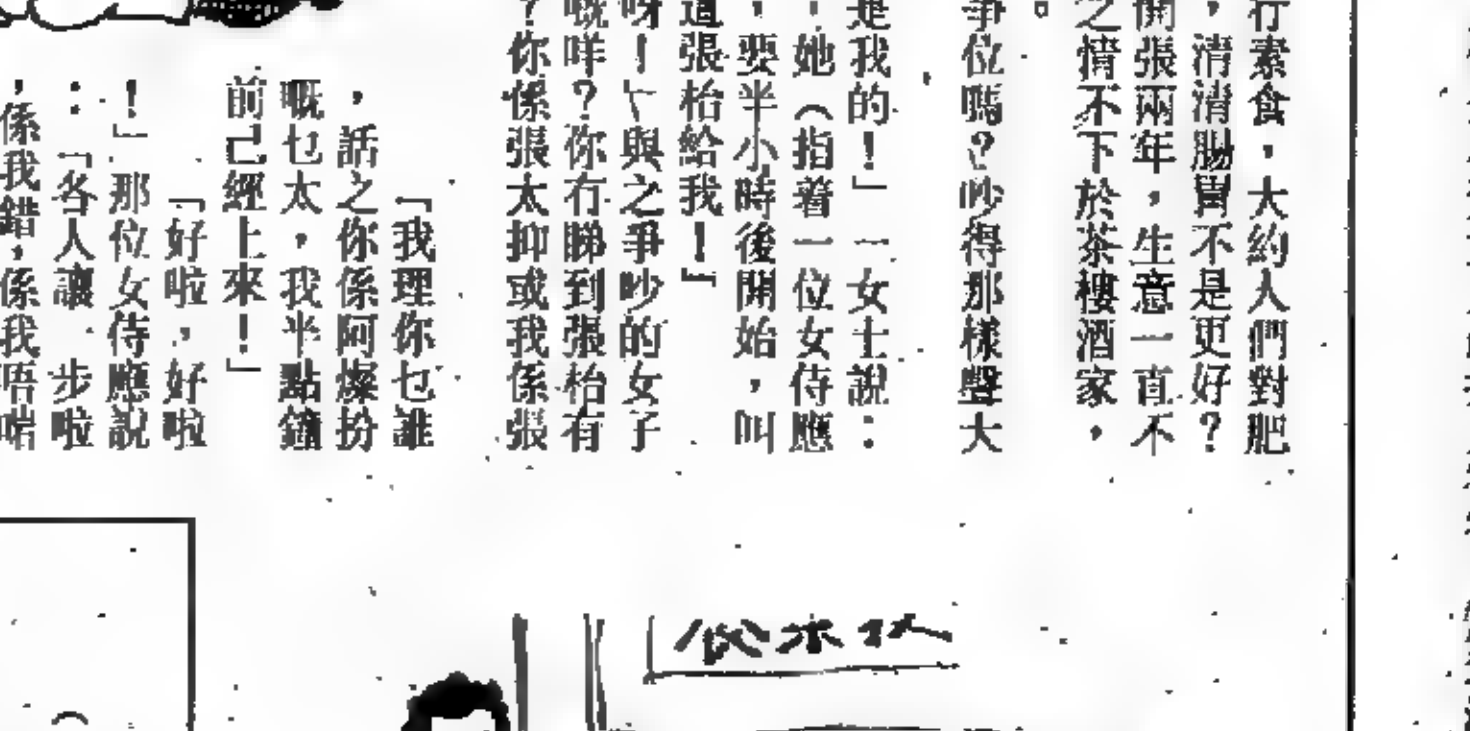 行素食，大約人們對肥
，清清腸胃不是更好？
開張兩年，生意一直不
之情不下於茶樓酒家，
。
爭位嗎？吵得那樣聲大
，
是我的！」一女士說：
，她（指着一位女侍應
，要半小時後開始，叫
這張枱給我！」
呀！」與之爭吵的女子
嘅咩？你冇睇到張枱有
？你係張太抑或我係張
「我理你乜誰
，話之你係阿燦扮
嘅乜太，我半點鐘
前己經上來！」
「好啦，好啦
！」那位女侍應說
：「各人讓一步啦
，係我錯，係我唔啱